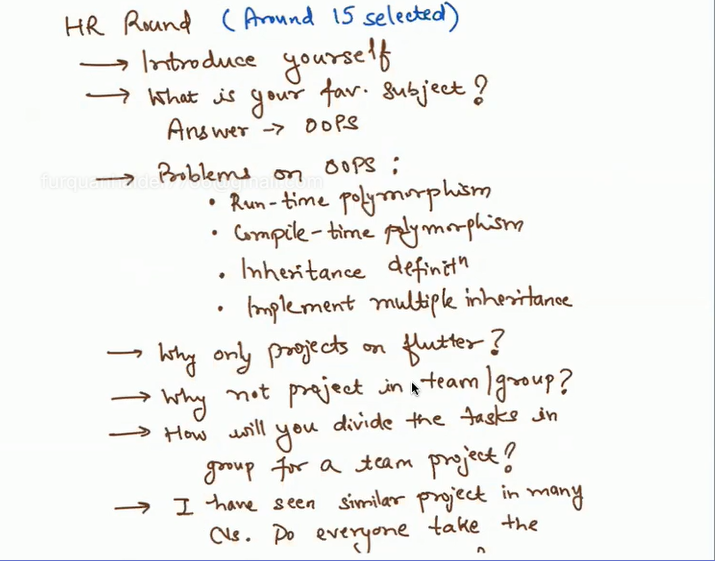 HR Round (Around 15 selected)
→ Introduce yourself
→ What is your fav. subject?
Answer → OOPS
→ Problems on OOPS :
• Run-time polymorphism
• Compile-time polymorphism
• Inheritance definitⁿ
• Implement multiple inheritance
→ Why only projects on flutter?
→ Why not project in team/group?
→ How will you divide the tasks in
group for a team project?
→ I have seen similar project in many
CVs. Do everyone take the